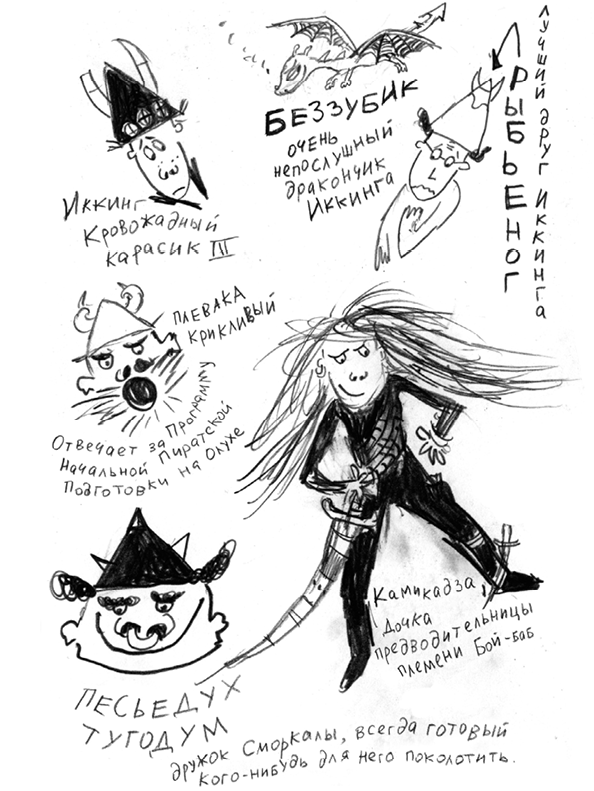 Иккинг
Кровожадный
Карасик III
БЕЗЗУБИК
очень
непослушный
дракончик
Иккинга
РЫБЬЕНОГ
лучший друг Иккинга
ПЛЕВАКА
КРИКЛИВЫЙ
Отвечает за Программу
Начальной Пиратской
Подготовки на Олухе
Камикадза,
дочка
предводительницы
племени Бой-баб
ПЕСЬЕДУХ
ТУГОДУМ
дружок Сморкалы, всегда готовый
кого-нибудь для него поколотить.